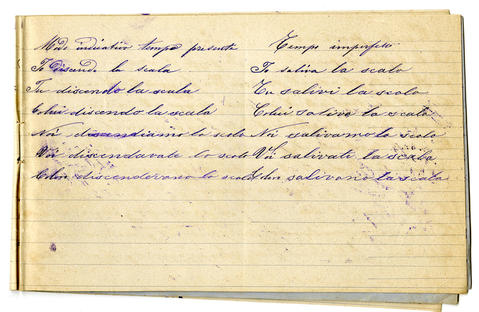 Modo indicativo tempo presente
Io discendo la scala
Tu discendo la scala
Colui discendo la scala
Noi discendiamo la scala
Voi discendavate la scala
Coloro discenderano la scala
Tempo imperfetto
Io saliva la scala
Tu salivi la scala
Colui saliva la scala
Noi salivamo la scala
Voi salivate la scala
salivano la scala